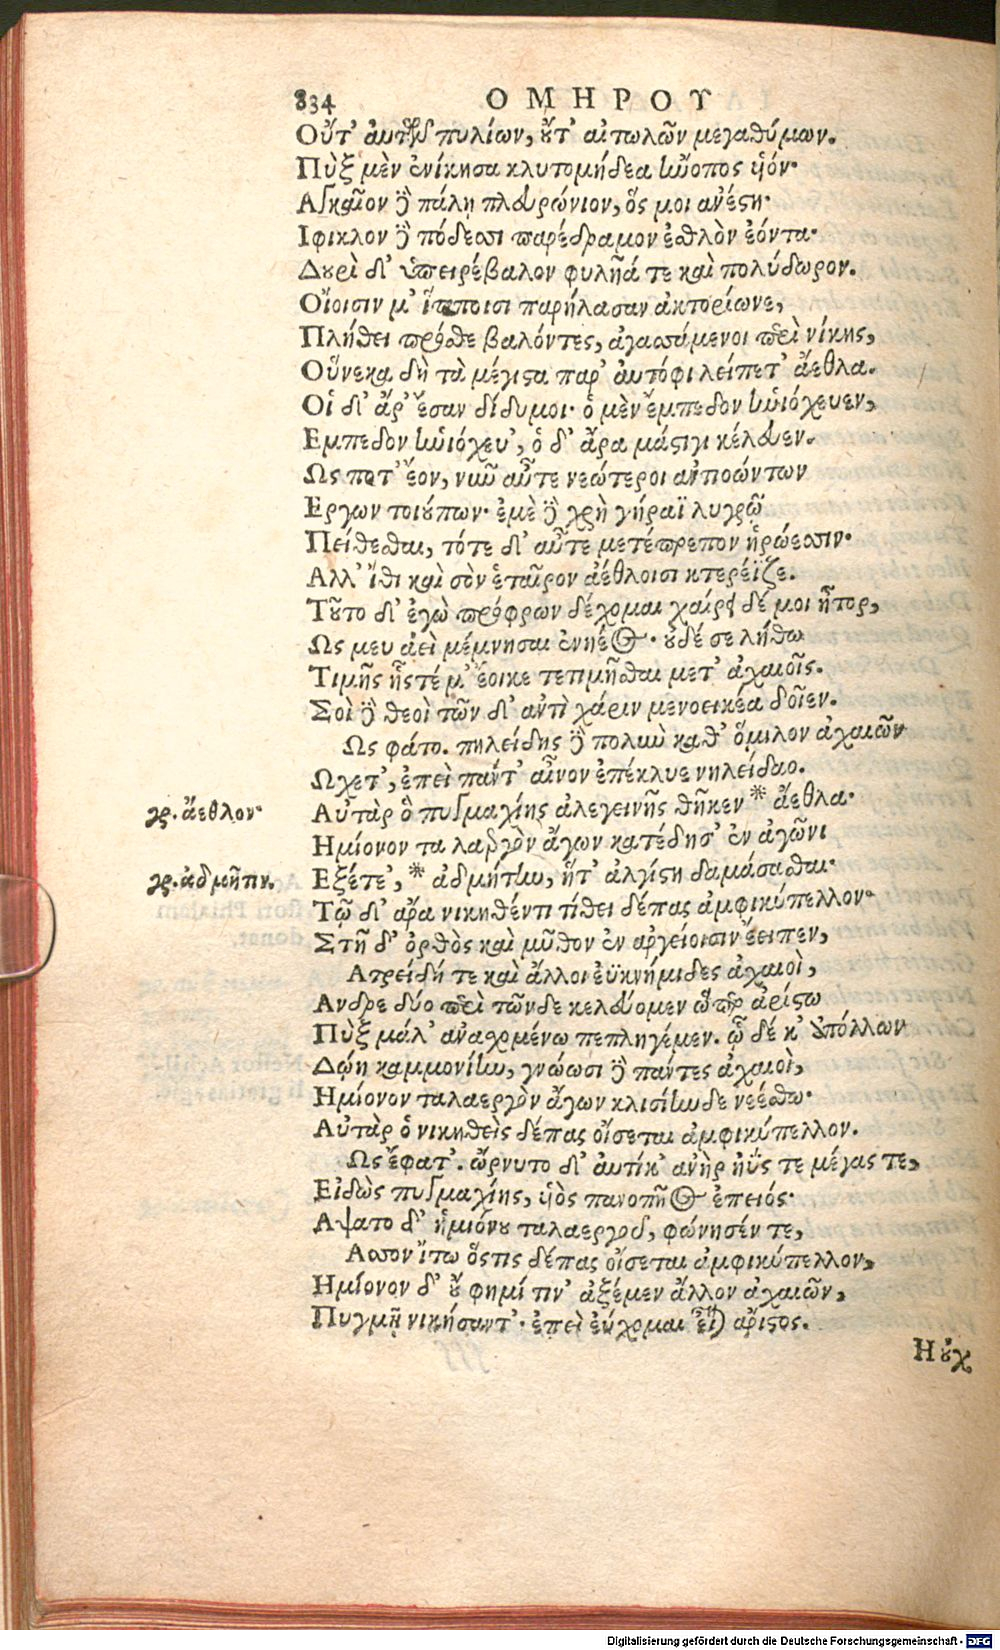 834 ΟΜΗΡΟΥ
Οὔτ' αὐτῶν πυλίων, οὔτ' αἰτωλῶν μεγαθύμων.
Πὺξ μὲν ἐνίκησα κλυτομήδεα ἤνοπος υἱόν·
Αγκαῖον δὲ πάλῃ πλευρώνιον, ὅς μοι ἀνέστη·
Ιφικλον δὲ πόδεσσι παρέδραμον ἐσθλὸν ἐόντα·
Δουρὶ δ' ὑπειρέβαλον φυλῆά τε καὶ πολύδωρον.
Οἴοισιν μ' ἵπποισι παρήλασαν ἀκτορίωνε,
Πλήθει πρόσθε βαλόντες, ἀγασσάμενοι περὶ νίκης,
Οὕνεκα δὴ τὰ μέγιστα παρ' αὐτόφι λείπετ' ἄεθλα.
Οἱ δ' ἄρ' ἔσαν δίδυμοι· ὁ μὲν ἔμπεδον ἡνιόχευεν,
Εμπεδον ἡνιόχευ', ὁ δ' ἄρα μάστιγι κέλευεν.
Ως ποτ' ἔον, νῦν αὖτε νεώτεροι ἀντιοώντων
Εργων τοιούτων· ἐμὲ δὲ χρὴ γήραϊ λυγρῷ
Πείθεσθαι, τότε δ' αὖτε μετέπρεπον ἡρώεσσιν·
Αλλ' ἴθι καὶ σὸν ἑταῖρον ἀέθλοισι κτερέϊζε.
Τοῦτο δ' ἐγὼ πρόφρων δέχομαι χαίρει δέ μοι ἦτορ,
Ως μευ ἀεὶ μέμνησαι ἐνηέος· οὐδέ σε λήθω
Τιμῆς ἧς τέ μ' ἔοικε τετιμῆσθαι μετ' ἀχαιοῖς.
Σοὶ δὲ θεοὶ τῶν δ' ἀντὶ χάριν μενοεικέα δοῖεν.
Ως φάτο. πηλείδης δὲ πολὺν καθ' ὅμιλον ἀχαιῶν
Ωχετ', ἐπεὶ πάντ' αἶνον ἐπέκλυε νηλείδαο.
γρ. ἄεθλον· Αὐτὰρ ὃ πυγμαχίης ἀλεγεινῆς θῆκεν * ἄεθλα·
Ημίονον ταλαεργὸν ἄγων κατέδησ' ἐν ἀγῶνι
γρ. ἀδμῆτιν. Εξέτε', * ἀδμήτην, ἥτ' ἀλγίστη δαμάσασθαι·
Τῷ δ' ἄρα νικηθέντι τίθει δέπας ἀμφικύπελλον·
Στῆ δ' ὀρθὸς καὶ μῦθον ἐν ἀργείοισιν ἔειπεν,
Ατρείδη τε καὶ ἄλλοι ἐϋκνήμιδες ἀχαιοὶ,
Ανδρε δύο περὶ τῶνδε κελεύομεν ὥπερ ἀρίστω
Πὺξ μάλ' ἀνασχομένω πεπληγέμεν. ᾧ δέ κ' ἀπόλλων
Δώῃ καμμονίην, γνώωσι δὲ πάντες ἀχαιοὶ,
Ημίονον ταλαεργὸν ἄγων κλισίην δε νεέσθω·
Αὐτὰρ ὁ νικηθεὶς δέπας οἴσεται ἀμφικύπελλον.
Ως ἔφατ'. ὤρνυτο δ' αὐτίκ' ἀνὴρ ἠΰς τε μέγας τε,
Εἰδὼς πυγμαχίης, υἱὸς πανοπῆος ἐπειός·
Αψατο δ' ἡμιόνου ταλαεργοῦ, φώνησέν τε,
Ασσον ἴτω ὅστις δέπας οἴσεται ἀμφικύπελλον,
Ημίονον δ' οὔ φημί τιν' ἀξέμεν ἄλλον ἀχαιῶν,
Πυγμῇ νικήσαντ'· ἐπεὶ εὔχομαι εἶναι ἄριστος.
Η οὐχ
Digitalisierung gefördert durch die Deutsche Forschungsgemeinschaft - DFG